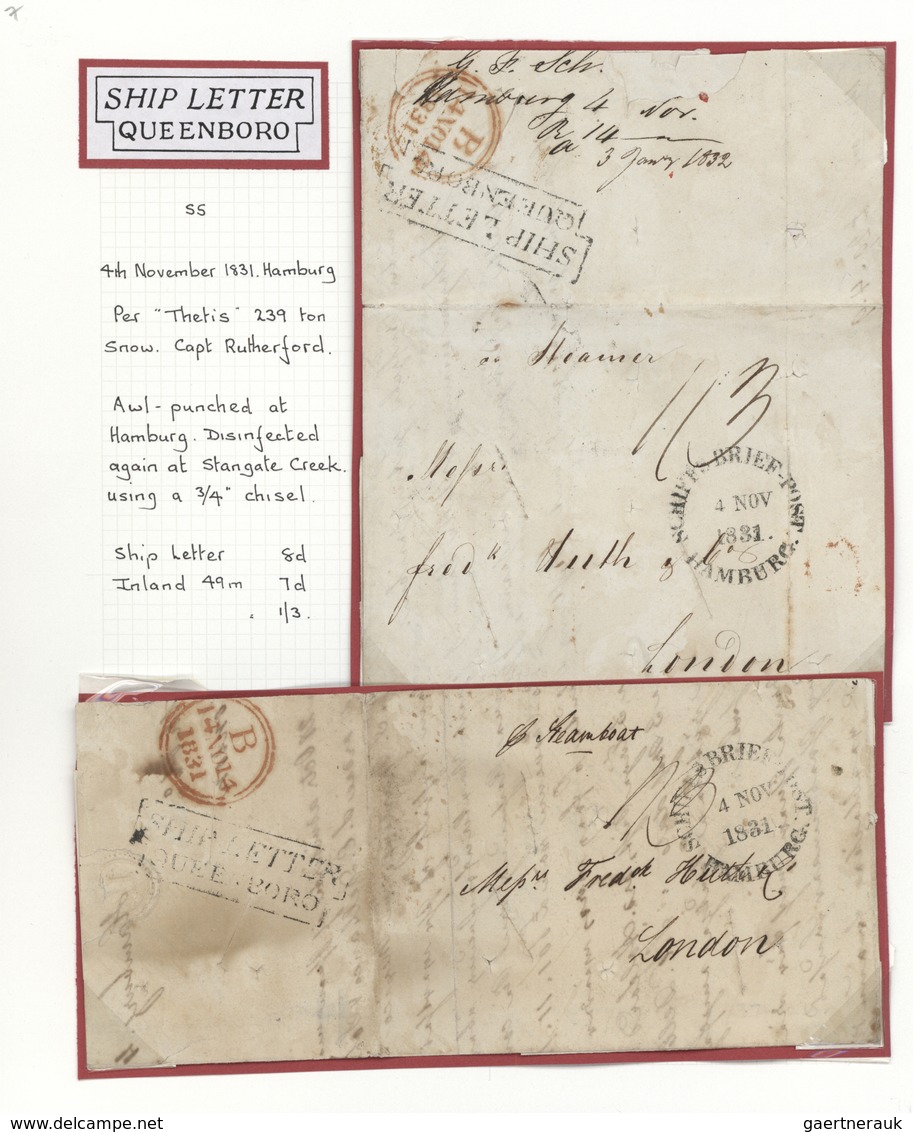 SHIP LETTER
QUEENBORO
SS
4th November 1831. Hamburg
Per "Thetis" 239 ton
Snow. Capt Rutherford.
Awl-punched at
Hamburg. Disinfected
again at Stangate Creek.
using a 3/4" chisel.
Ship Letter 8d
Inland 49m 7d
1/3.
G. F. Sch.
Hamburg 4 Nov.
Ra 14
3 Janry 1832
B
14 NO 14
1831
SHIP LETTER
QUEENBORO
Steamer
1/3
Messrs
SCHIFFS BRIEF-POST
4 NOV
1831.
HAMBURG.
Fredk Huth & Co
London
B
14 NO 14
1831
SHIP LETTER
QUEENBORO
p Steamboat
1/3
SCHIFFS BRIEF-POST.
4 NOV
1831
HAMBURG.
Messrs Fredck Huth & Co
London
gaertnerauk